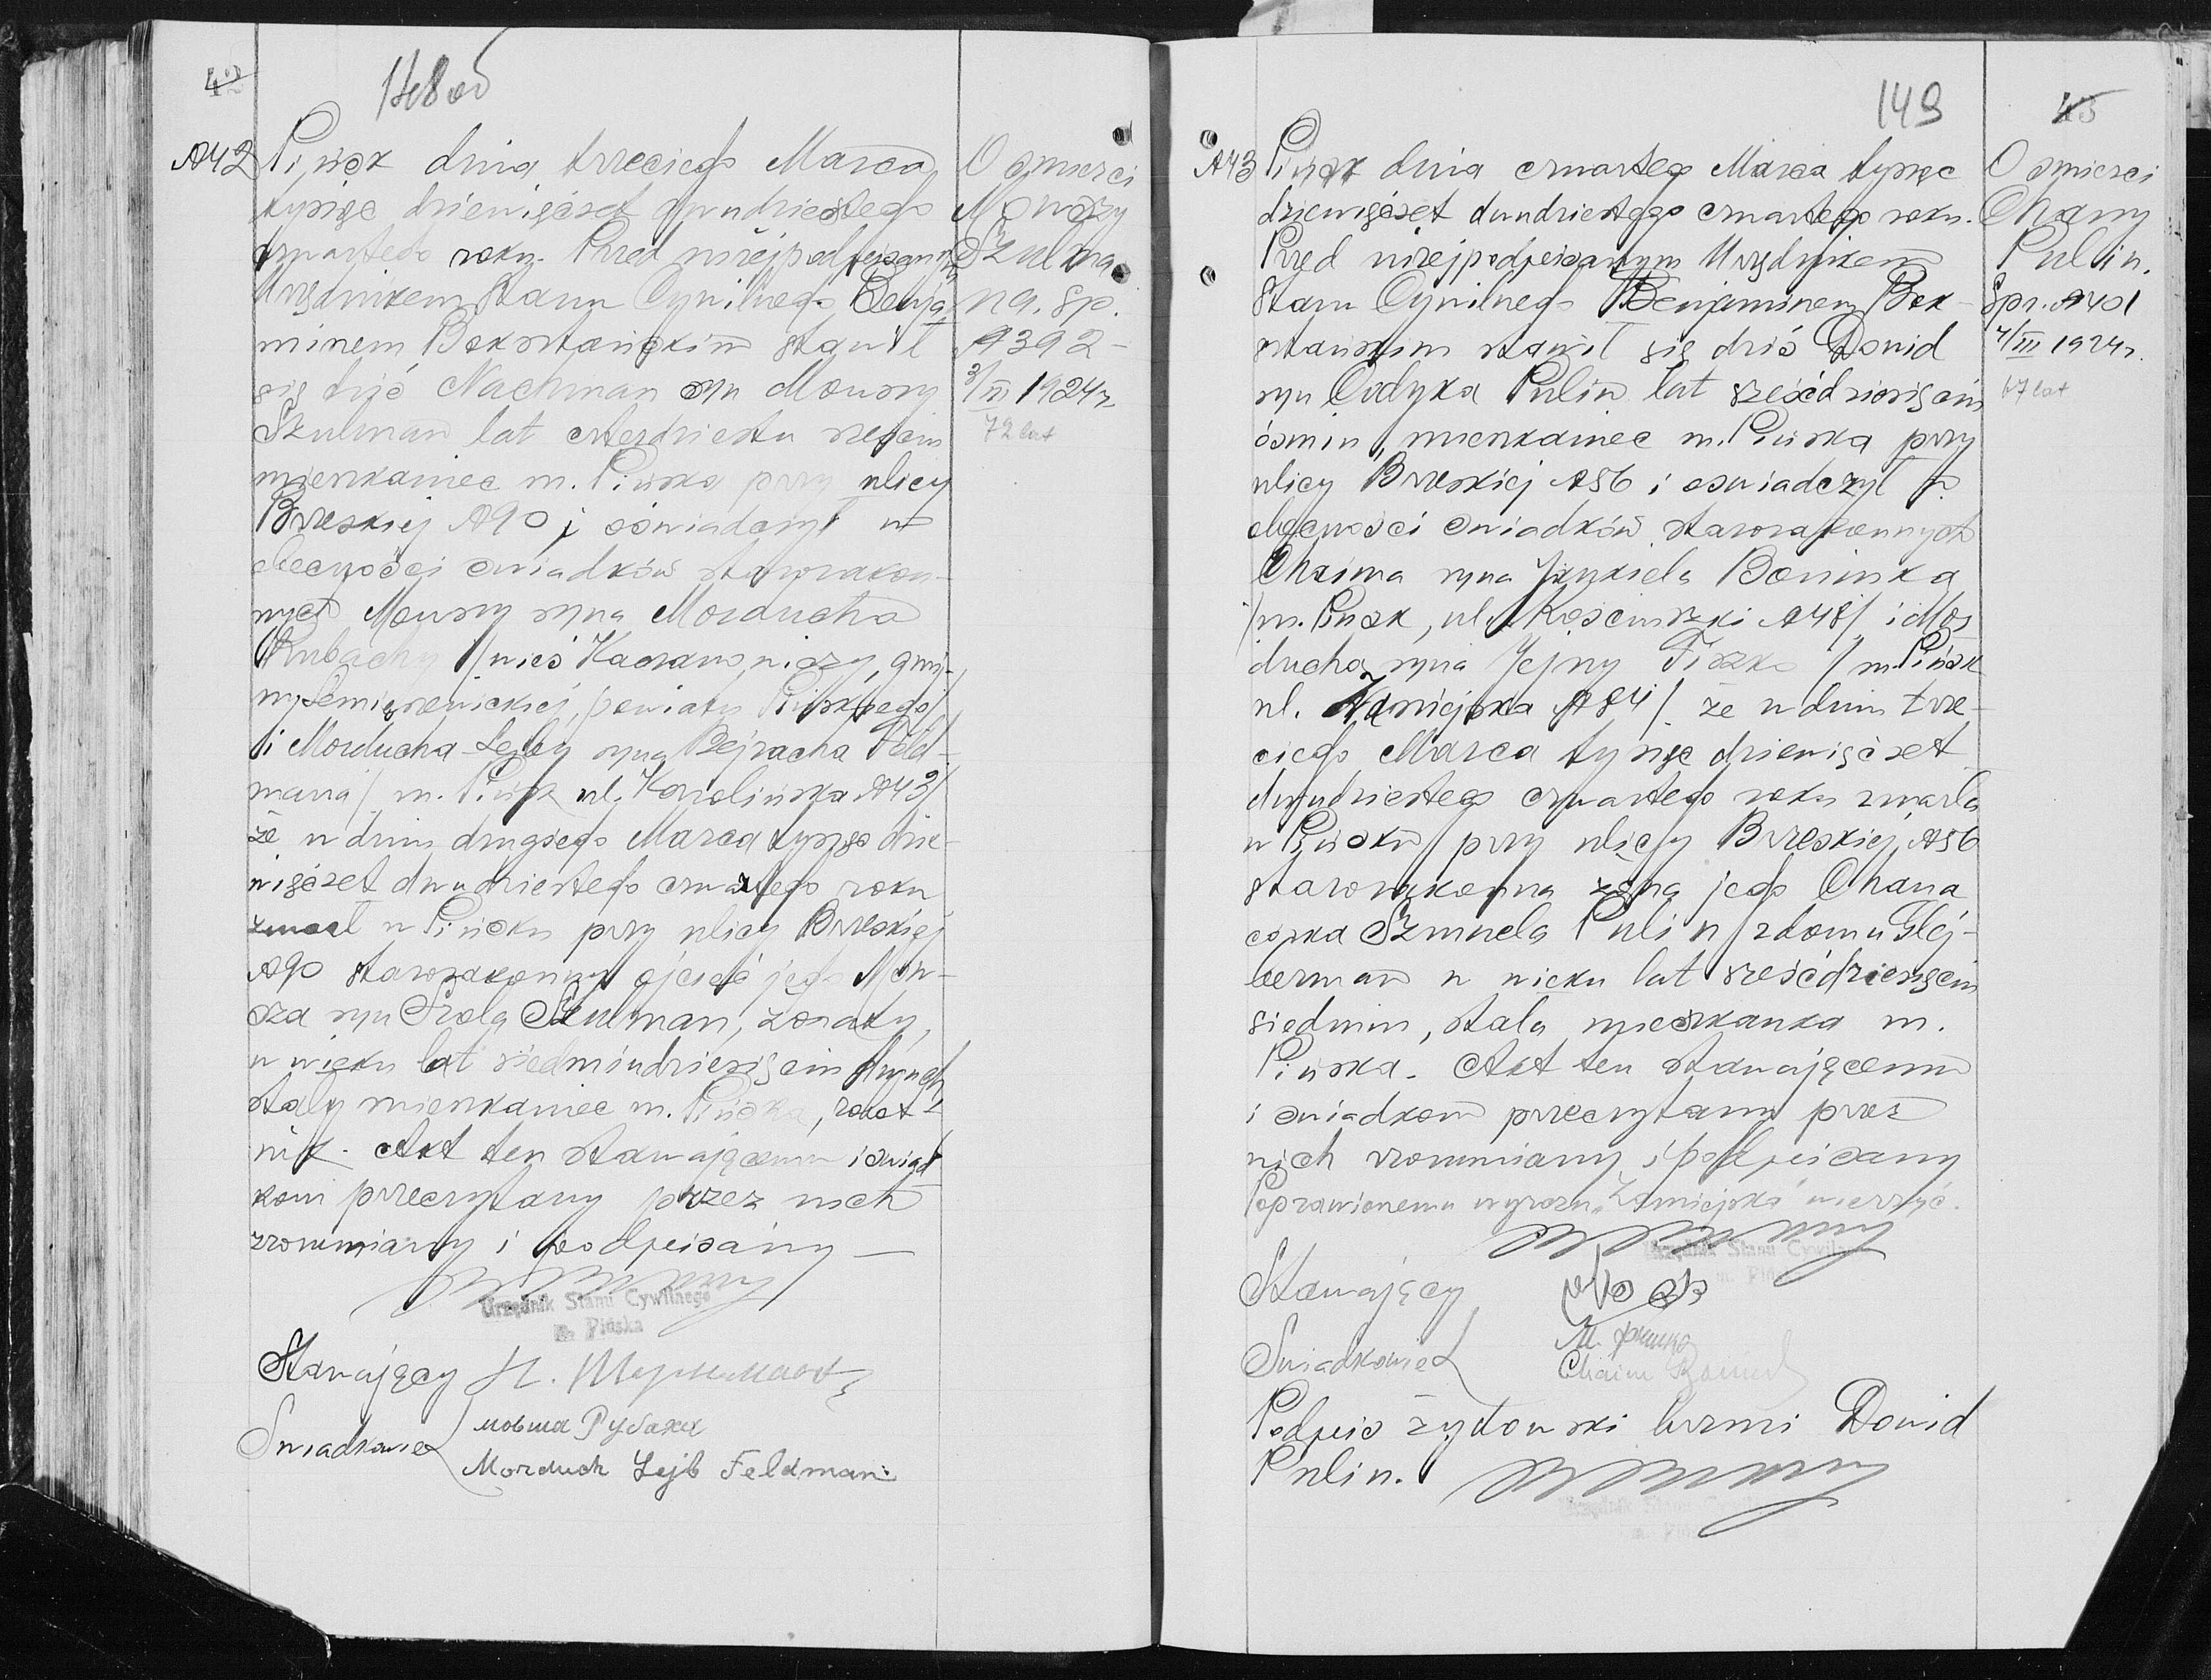 42
148 od
№42
Pińsk dnia trzeciego Marca
tysiąc dziewięćset dwudziestego
czwartego roku. Przed niżejpodpisanym
Urzędnikiem Stanu Cywilnego Benja-
minem Bokstańskim stawił
się dziś Nachman syn Mowszy
Szulman lat czterdziestu
mieszkaniec m. Pińska przy ulicy
Brzeskiej №90 i oświadczył w
obecności świadków starozakon-
nych Mowszy syna Morducha
Rubachy /wieś gmi-
ny powiatu Pińskiego/
i Morducha-Lejby syna Bejracha Feld-
mana / m. Pińsk ul. Karolińska №43/
że w dniu drugiego Marca tysiąc dzie-
więćset dwudziestego czwartego roku
zmarł w Pińsku przy ulicy Brzeskiej
№90 starozakonny ojciec jego Mow-
sza syn Srola Szulman, żonaty,
w wieku lat siedmiudziesięciu dwuch,
stały mieszkaniec m. Pińska, robot-
nik. Akt ten stawającemu i świad-
kom przeczytany przez nich
zrozumiany i podpisany —
Urzędnik Stanu Cywilnego
m. Pińska
Stawający Н. Шульман
Świadkowie мовша Рубаха
Morduch Lejb Feldman
O śmierci
Mowszy
Szulma-
na. Sp.
№392 -
3/III 1924 r.
72 lat
149
43
№43
Pińsk dnia czwartego Marca tysiąc
dziewięćset dwudziestego czwartego roku.
Przed niżejpodpisanym Urzędnikiem
Stanu Cywilnego Benjaminem Bok-
stańskim stawił się dziś Dowid
syn Ovdyka Pulin lat sześćdziesięciu
ośmiu, mieszkaniec m. Pińska przy
ulicy Brzeskiej №56 i oświadczył w
obecności świadków starozakonnych
Chaima syna
/m. Pińsk, ul. Kościuszki №48/ i Mor-
ducha syna Jejny Fiszko / m. Pińsk
ul. Zamiejska №84/ że w dniu trze-
ciego Marca tysiąc dziewięćset
dwudziestego czwartego roku zmarła
w Pińsku przy ulicy Brzeskiej №56
starozakonna żona jego Chana
córka Szmuela Pulin / z domu Glej-
berman w wieku lat sześćdziesięciu
siedmiu, stała mieszkanka m.
Pińska. Akt ten stawającemu
i świadkom przeczytany przez
nich zrozumiany i podpisany
Poprawionemu wyrazu "Zamiejska" wierzyć.
Urzędnik Stanu Cywilnego
m. Pińska
Stawający
Świadkowie М. Фишко
Chaim
Podpis żydowski brzmi Dowid
Pulin.
O śmierci
Chany
Pulin.
Spr. №401
4/III 1924 r.
67 lat